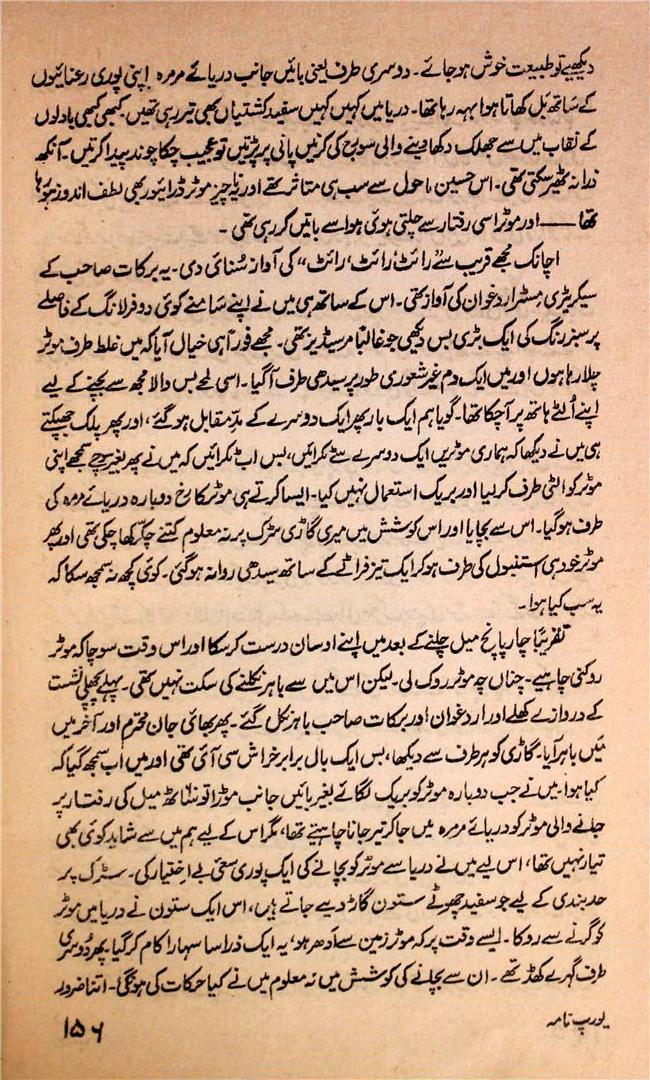 دیکھیے تو طبیعت خوش ہو جائے۔ دوسری طرف یعنی بائیں جانب دریائے مرمرہ اپنی پوری رعنائیوں
کے ساتھ بَل کھاتا ہوا بہہ رہا تھا۔ دریا میں کہیں کہیں سفید کشتیاں بھی تیر رہی تھیں۔ کبھی کبھی بادلوں
کے نقاب میں سے جھلک دکھا دینے والی سورج کی کرنیں پانی پر پڑتیں تو عجیب چکا چوند پیدا کرتیں۔ آنکھ
ذرا نہ ٹھیر سکتی تھی۔ اس حسین ماحول سے سب ہی متاثر تھے اور ناچیز موٹر ڈرائیور بھی لطف اندوز ہو رہا
تھا — اور موٹر اسی رفتار سے چلتی ہوئی ہوا سے باتیں کر رہی تھی۔
اچانک مجھے قریب سے "رائٹ، رائٹ، رائٹ" کی آواز سُنائی دی۔ یہ برکات صاحب کے
سیکریٹری مسٹر اردغوان کی آواز تھی۔ اس کے ساتھ ہی میں نے اپنے سامنے کوئی دو فرلانگ کے فاصلے
پر سبز رنگ کی ایک بڑی بس دیکھی جو غالباً مرسیڈیز تھی۔ مجھے فوراً ہی خیال آیا کہ میں غلط طرف موٹر
چلا رہا ہوں اور میں ایک دم غیر شعوری طور پر سیدھی طرف آگیا۔ اسی لمحے بس والا مجھ سے بچنے کے لیے
اپنے اُلٹے ہاتھ پر آچکا تھا۔ گویا ہم ایک بار پھر ایک دوسرے کے مدِّمقابل ہو گئے، اور پھر پلک جھپکتے
ہی میں نے دیکھا کہ ہماری موٹریں ایک دوسرے سے ٹکرائیں، بس اب ٹکرائیں کہ میں نے پھر بغیر سوچے سمجھے اپنی
موٹر کو الٹی طرف کر لیا اور بریک استعمال نہیں کیا۔ ایسا کرتے ہی موٹر کا رخ دوبارہ دریائے مرمرہ کی
طرف ہو گیا۔ اس سے بچایا اور اس کوشش میں میری گاڑی سڑک پر نہ معلوم کتنے چکّر کھا چکی تھی اور پھر
موٹر خود ہی استنبول کی طرف ہو کر ایک تیز فراٹے کے ساتھ سیدھی روانہ ہو گئی۔ کوئی کچھ نہ سمجھ سکا کہ
یہ سب کیا ہوا۔
تقریباً چار پانچ میل چلنے کے بعد میں اپنے اوسان درست کر سکا اور اس وقت سوچا کہ موٹر
روکنی چاہیے۔ چناں چہ موٹر روک لی۔ لیکن اس میں سے باہر نکلنے کی سکت نہیں تھی۔ پہلے پچھلی نشست
کے دروازے کھلے اور اردغوان اور برکات صاحب باہر نکل گئے۔ پھر بھائی جان محترم اور آخر میں
مَیں باہر آیا۔ گاڑی کو ہر طرف سے دیکھا، بس ایک بال برابر خراش سی آئی تھی اور میں اب سمجھ گیا کہ
کیا ہوا، میں نے جب دوبارہ موٹر کو بریک لگائے بغیر بائیں جانب موڑا تو ساٹھ میل کی رفتار پر
جانے والی موٹر کو دریائے مرمرہ میں جا کر تیر جانا چاہیے تھا، مگر اس کے لیے ہم میں سے شاید کوئی بھی
تیار نہیں تھا، اس لیے میں نے دریا سے موٹر کو بچانے کی ایک پوری سعیٔ بے اختیار کی۔ سڑک پر
حدبندی کے لیے جو سفید چھوٹے ستون گاڑ دیے جاتے ہیں، اس ایک ستون نے دریا میں موٹر
کو گرنے سے روکا۔ ایسے وقت پر کہ موٹر زمین سے اُدھر ہو، یہ ایک ذرا سا سہارا کام کر گیا۔ پھر دُوسری
طرف گہرے کھڈ تھے۔ ان سے بچانے کی کوشش میں نہ معلوم میں نے کیا حرکات کی ہونگی۔ اتنا ضرور
یورپ نامہ
۱۵۶